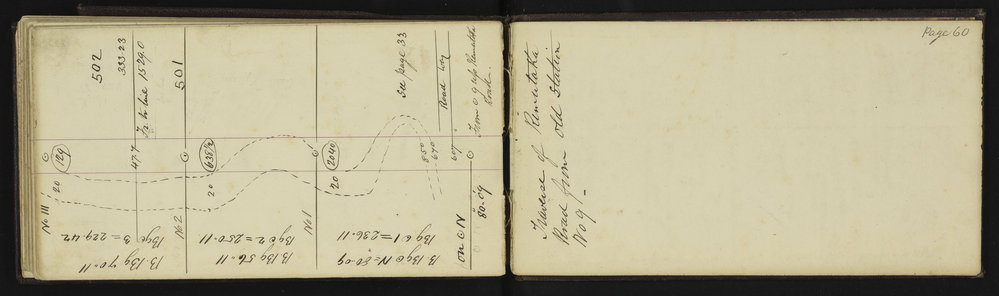 502
333.23
Fr to line 1529.0
501
477
129
20
No III
B. Bg 70.11
Bg @ 3 = 229.42
635½
20
No 2
B Bg 56.11
Bg @ 2 = 250.11
2040
20
No 1
B Bg @ N = 80.09
Bg @ 1 = 236.11
See page 33
Road way
850
640
607
From
Road
on @ N
80.09
Page 60
Traverse of Rimutaka
Road from Old Station
No 9